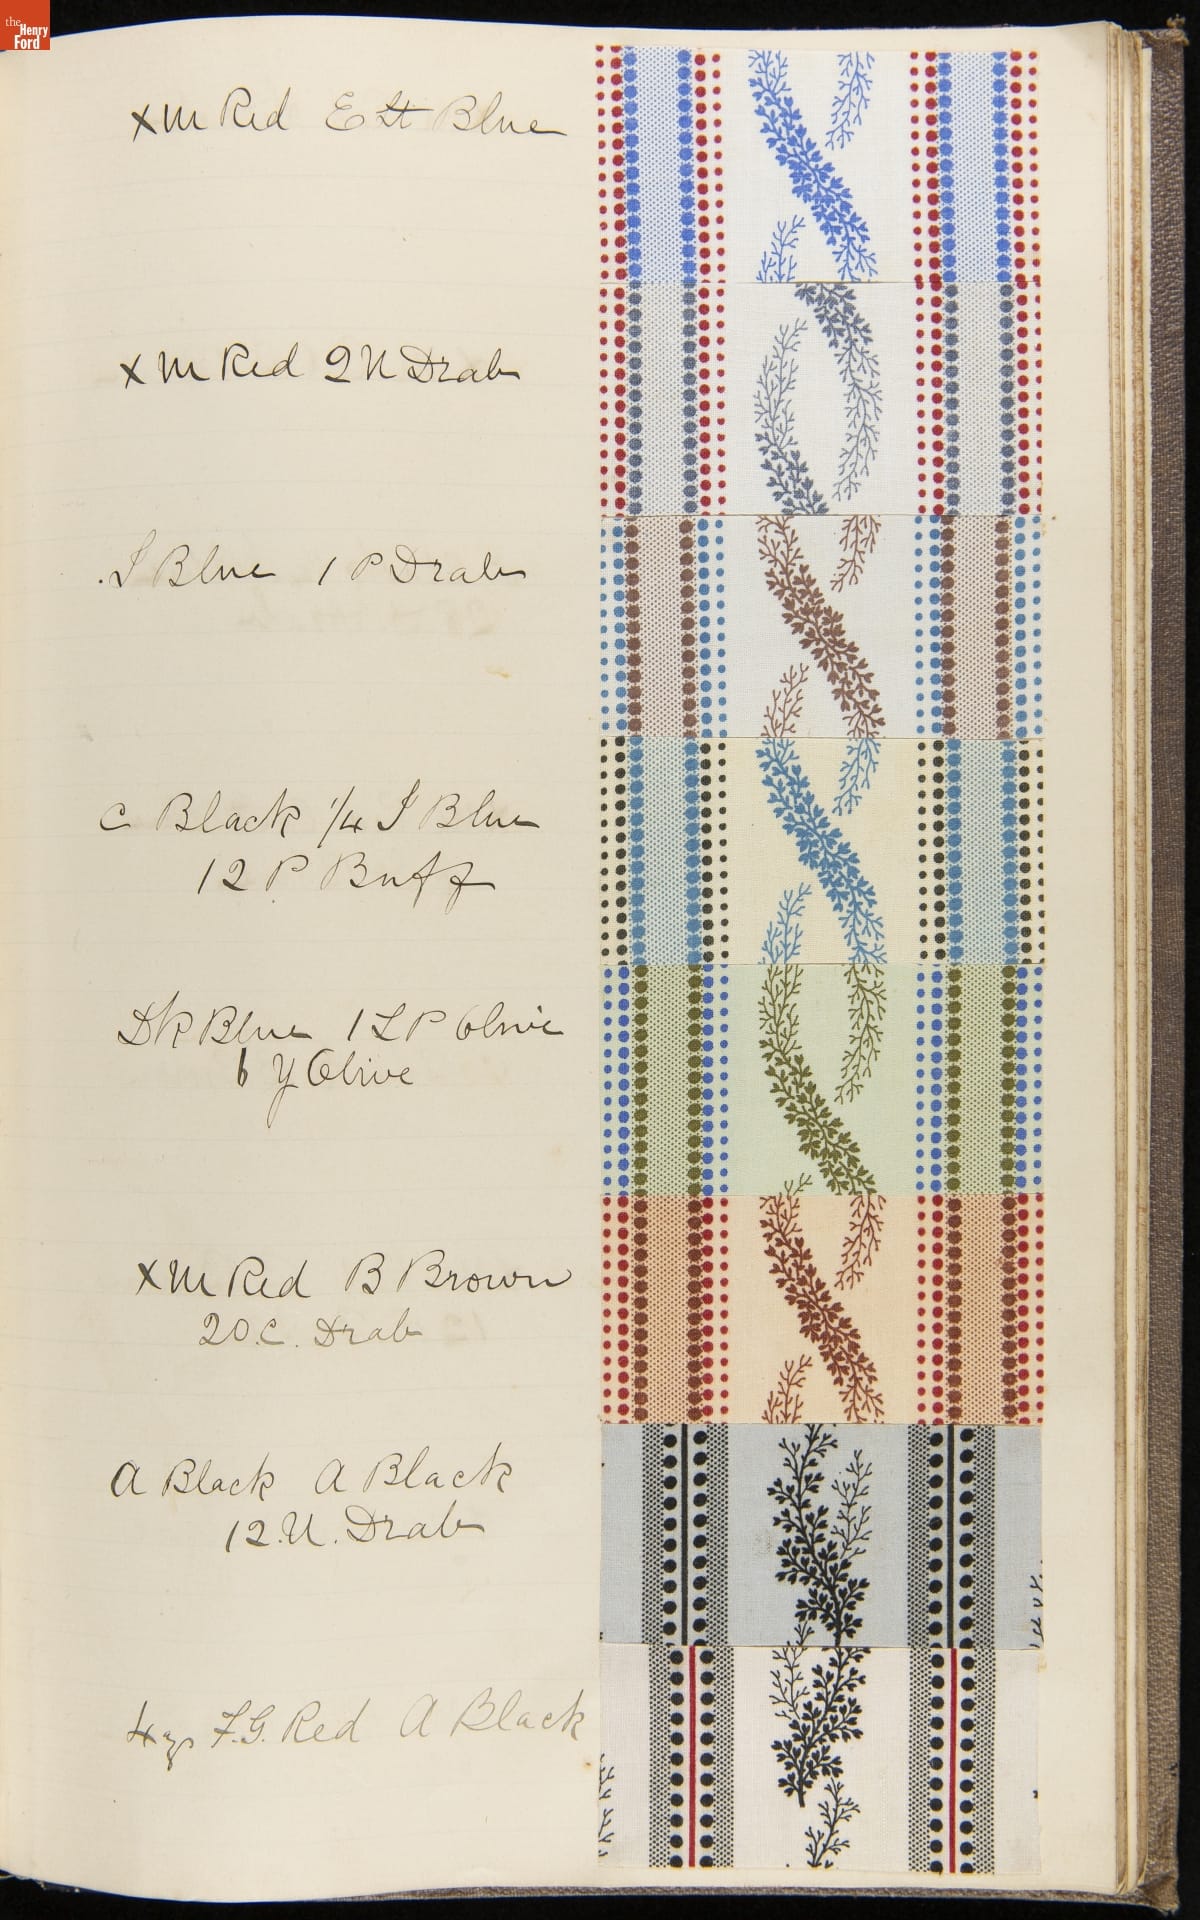 the
Henry
Ford
x M Red E Lt Blue
x M Red 2 N Drab
I Blue 1 P Drab
C Black 1/4 I Blue
12 P Buff
Dk Blue 1 L P Olive
6 Y Olive
x M Red B Brown
20.C. Drab
A Black A Black
12.N. Drab
F.G. Red A Black